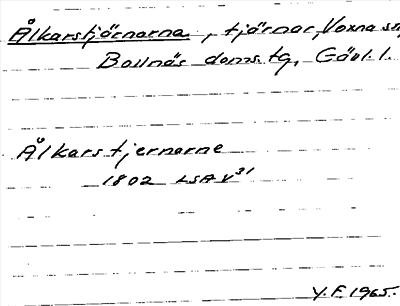 Ålkarstjärnarna, tjärnar, Voxna sn,
Bollnäs doms.tg, Gävl.l.
Ålkarstjernarne
1802 LSA V31
Y.F. 1965.